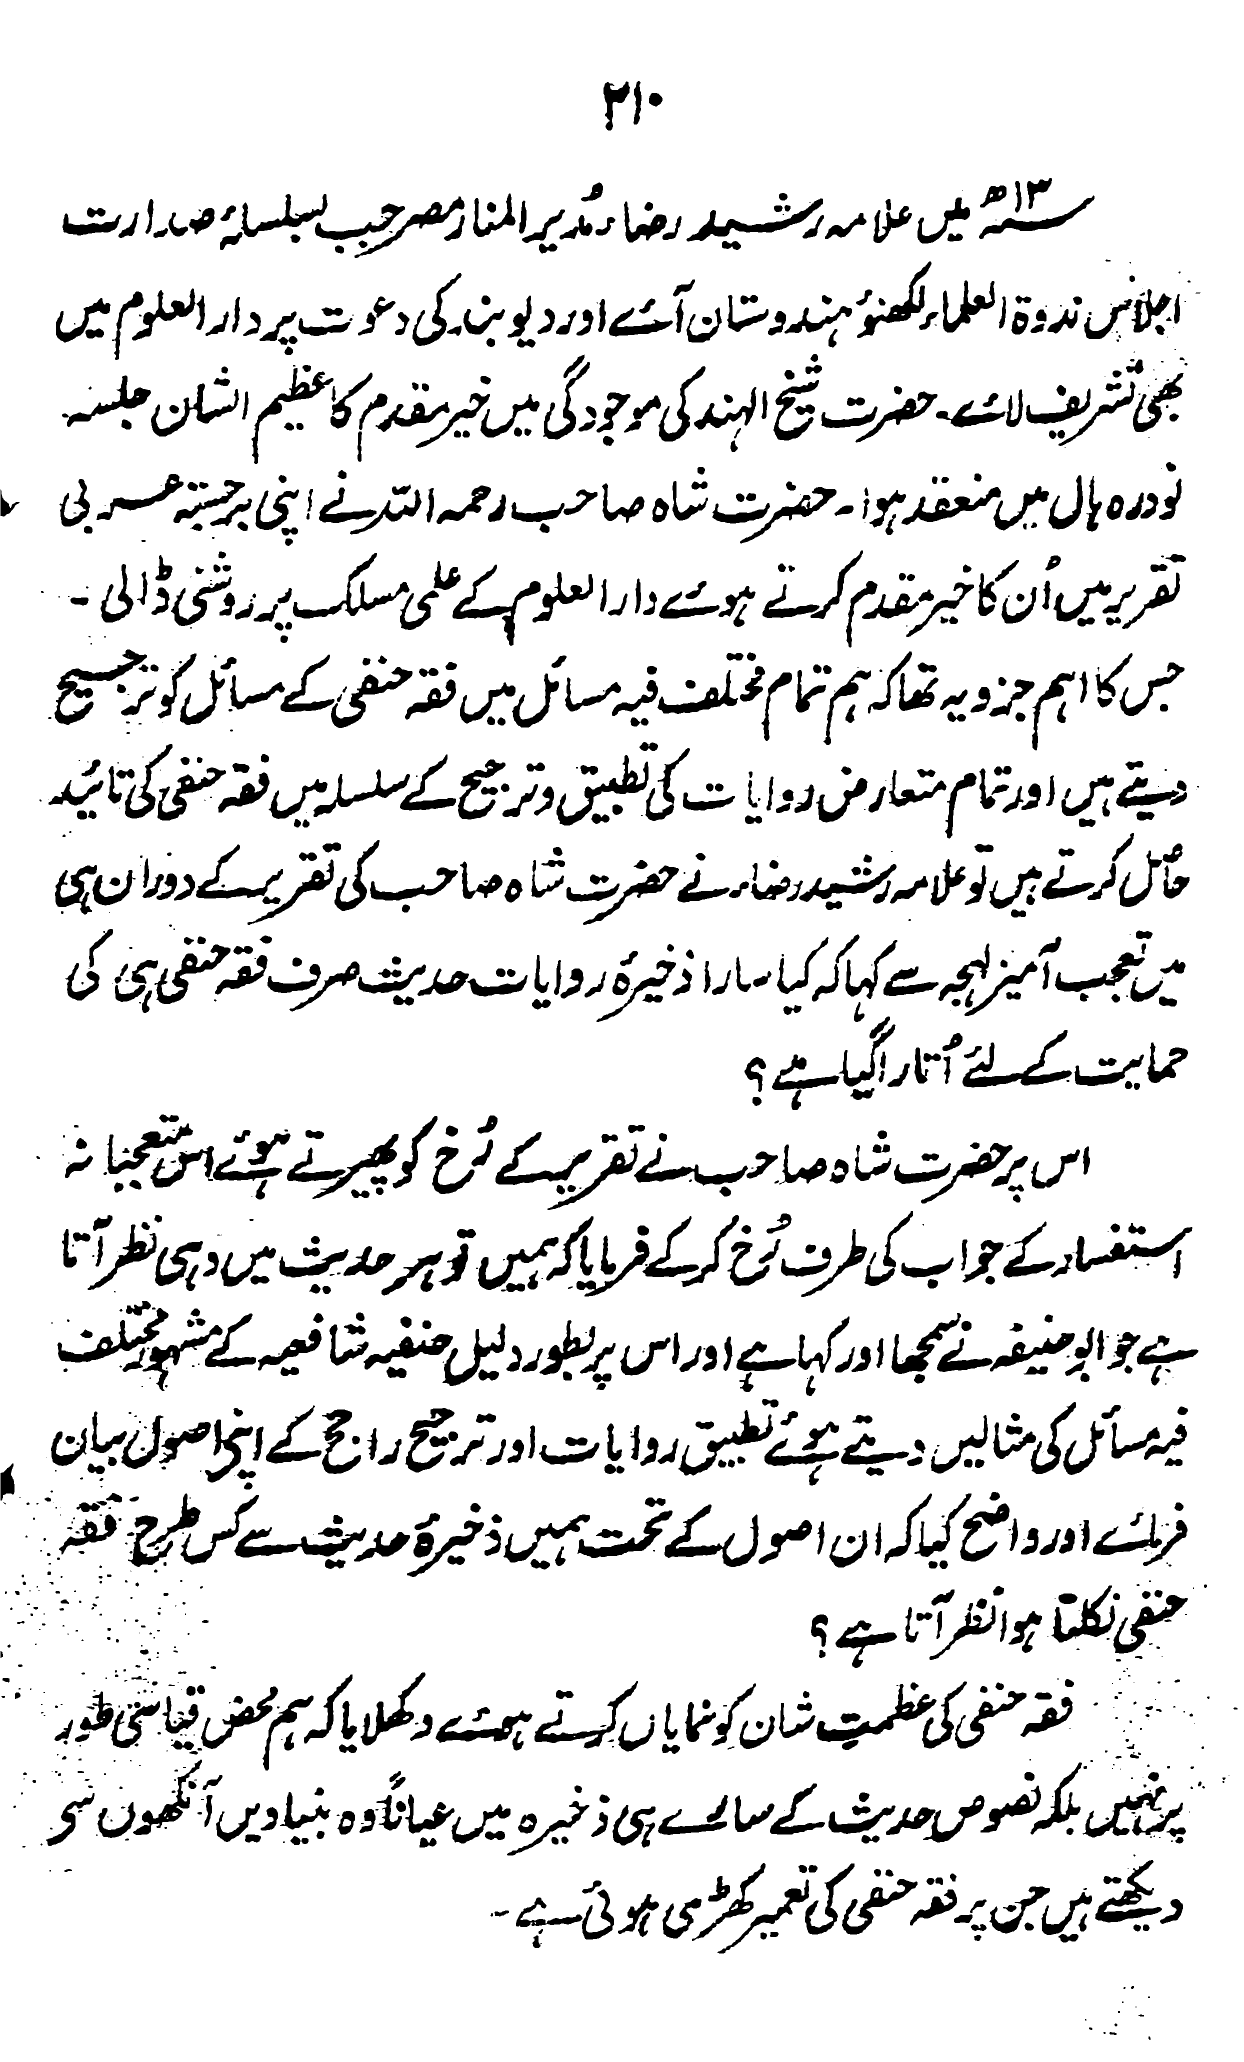 ۲۱۰
۱۳ھ میں علامہ رشید رضاء مُدیر المنار مصر جب بسلسلۂ صدارت
اجلاس ندوۃ العلماء لکھنؤ ہندوستان آئے اور دیوبند کی دعوت پر دار العلوم میں
بھی تشریف لائے۔ حضرت شیخ الہند کی موجودگی میں خیر مقدم کا عظیم الشان جلسہ
نودرہ ہال میں منعقد ہوا۔ حضرت شاہ صاحب رحمہ اللہ نے اپنی برجستہ عربی
تقریر میں اُن کا خیر مقدم کرتے ہوئے دار العلوم کے علمی مسلک پر روشنی ڈالی۔
جس کا اہم جزو یہ تھا کہ ہم تمام مختلف فیہ مسائل میں فقہ حنفی کے مسائل کو ترجیح
دیتے ہیں اور تمام متعارض روایات کی تطبیق و ترجیح کے سلسلہ میں فقہ حنفی کی تائید
حاصل کرتے ہیں تو علامہ رشید رضاء نے حضرت شاہ صاحب کی تقریر کے دوران ہی
میں تعجب آمیز لہجہ سے کہا کہ کیا سارا ذخیرۂ روایات حدیث صرف فقہ حنفی ہی کی
حمایت کے لئے اُتارا گیا ہے؟
اس پر حضرت شاہ صاحب نے تقریر کے رُخ کو پھیرتے ہوئے اس متعجبانہ
استفسار کے جواب کی طرف رُخ کر کے فرمایا کہ ہمیں تو ہر حدیث میں وہی نظر آتا
ہے جو ابو حنیفہ نے سمجھا اور کہا ہے اور اس پر بطور دلیل حنفیہ شافعیہ کے مشہور مختلف
فیہ مسائل کی مثالیں دیتے ہوئے تطبیق روایات اور ترجیح راجح کے اپنی اصول بیان
فرمائے اور واضح کیا کہ ان اصول کے تحت ہمیں ذخیرۂ حدیث سے کس طرح فقہ
حنفی نکلتا ہوا نظر آتا ہے؟
فقہ حنفی کی عظمتِ شان کو نمایاں کرتے ہوئے دکھلایا کہ ہم محض قیاسی طور
پر نہیں بلکہ نصوص حدیث کے سارے ہی ذخیرہ میں عیاناً وہ بنیادیں آنکھوں سی
دیکھتے ہیں جن پر فقہ حنفی کی تعمیر کھڑی ہوئی ہے۔